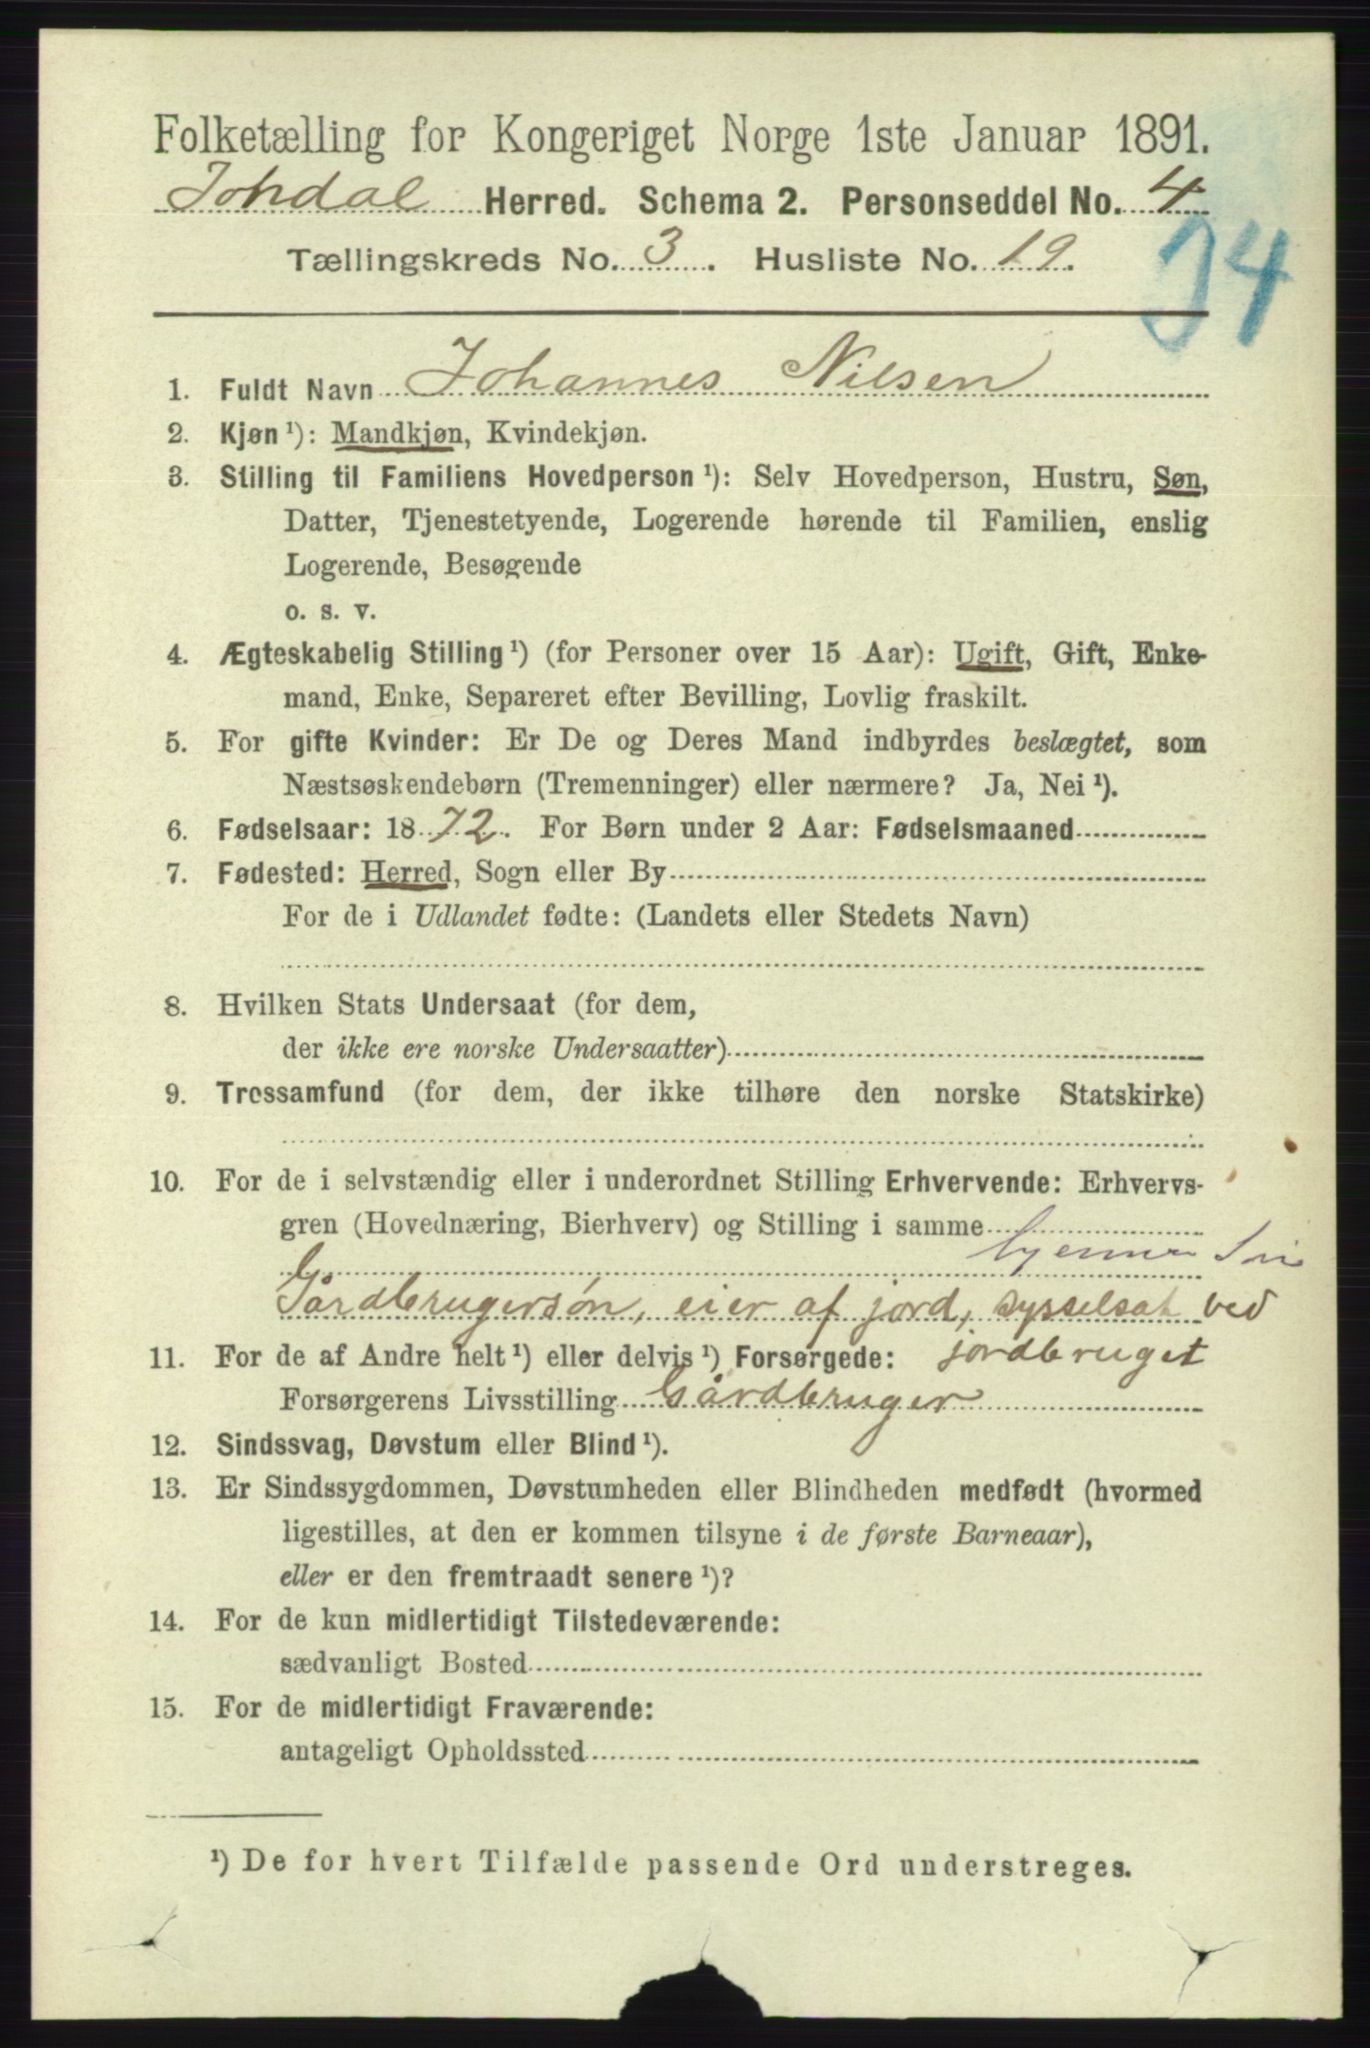 Folketælling for Kongeriget Norge 1ste Januar 1891.
Johdal Herred. Schema 2. Personseddel No. 4
34
Tællingskreds No. 3. Husliste No. 19.
1. Fuldt Navn Johannes Nilsen
2. Kjøn¹): Mandkjøn, Kvindekjøn.
3. Stilling til Familiens Hovedperson¹): Selv Hovedperson, Hustru, Søn,
Datter, Tjenestetyende, Logerende hørende til Familien, enslig
Logerende, Besøgende
o. s. v.
4. Ægteskabelig Stilling¹) (for Personer over 15 Aar): Ugift, Gift, Enke-
mand, Enke, Separeret efter Bevilling, Lovlig fraskilt.
5. For gifte Kvinder: Er De og Deres Mand indbyrdes beslægtet, som
Næstsøskendebørn (Tremenninger) eller nærmere? Ja, Nei¹).
6. Fødselsaar: 1872. For Børn under 2 Aar: Fødselsmaaned
7. Fødested: Herred, Sogn eller By
For de i Udlandet fødte: (Landets eller Stedets Navn)
8. Hvilken Stats Undersaat (for dem,
der ikke ere norske Undersaatter)
9. Trossamfund (for dem, der ikke tilhøre den norske Statskirke)
10. For de i selvstændig eller i underordnet Stilling Erhvervende: Erhvervs-
gren (Hovednæring, Bierhverv) og Stilling i samme
Gårdbrugersøn, eier af jord, sysselsat ved
jordbruget
11. For de af Andre helt¹) eller delvis¹) Forsørgede:
Forsørgerens Livsstilling Gårdbruger
12. Sindssvag, Døvstum eller Blind¹).
13. Er Sindssygdommen, Døvstumheden eller Blindheden medfødt (hvormed
ligestilles, at den er kommen tilsyne i de første Barneaar),
eller er den fremtraadt senere¹)?
14. For de kun midlertidigt Tilstedeværende:
sædvanligt Bosted
15. For de midlertidigt Fraværende:
antageligt Opholdssted
¹) De for hvert Tilfælde passende Ord understreges.